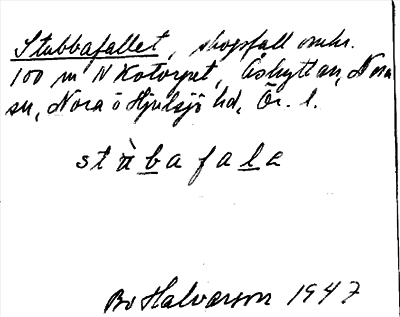 Stubbafallet, skogsfall omkr.
100 m N Kotorpet, Åshyttan, Nora
sn, Nora o Hjulsjö hd, Ör. l.
stùbafala
Bo Halvarson 1947